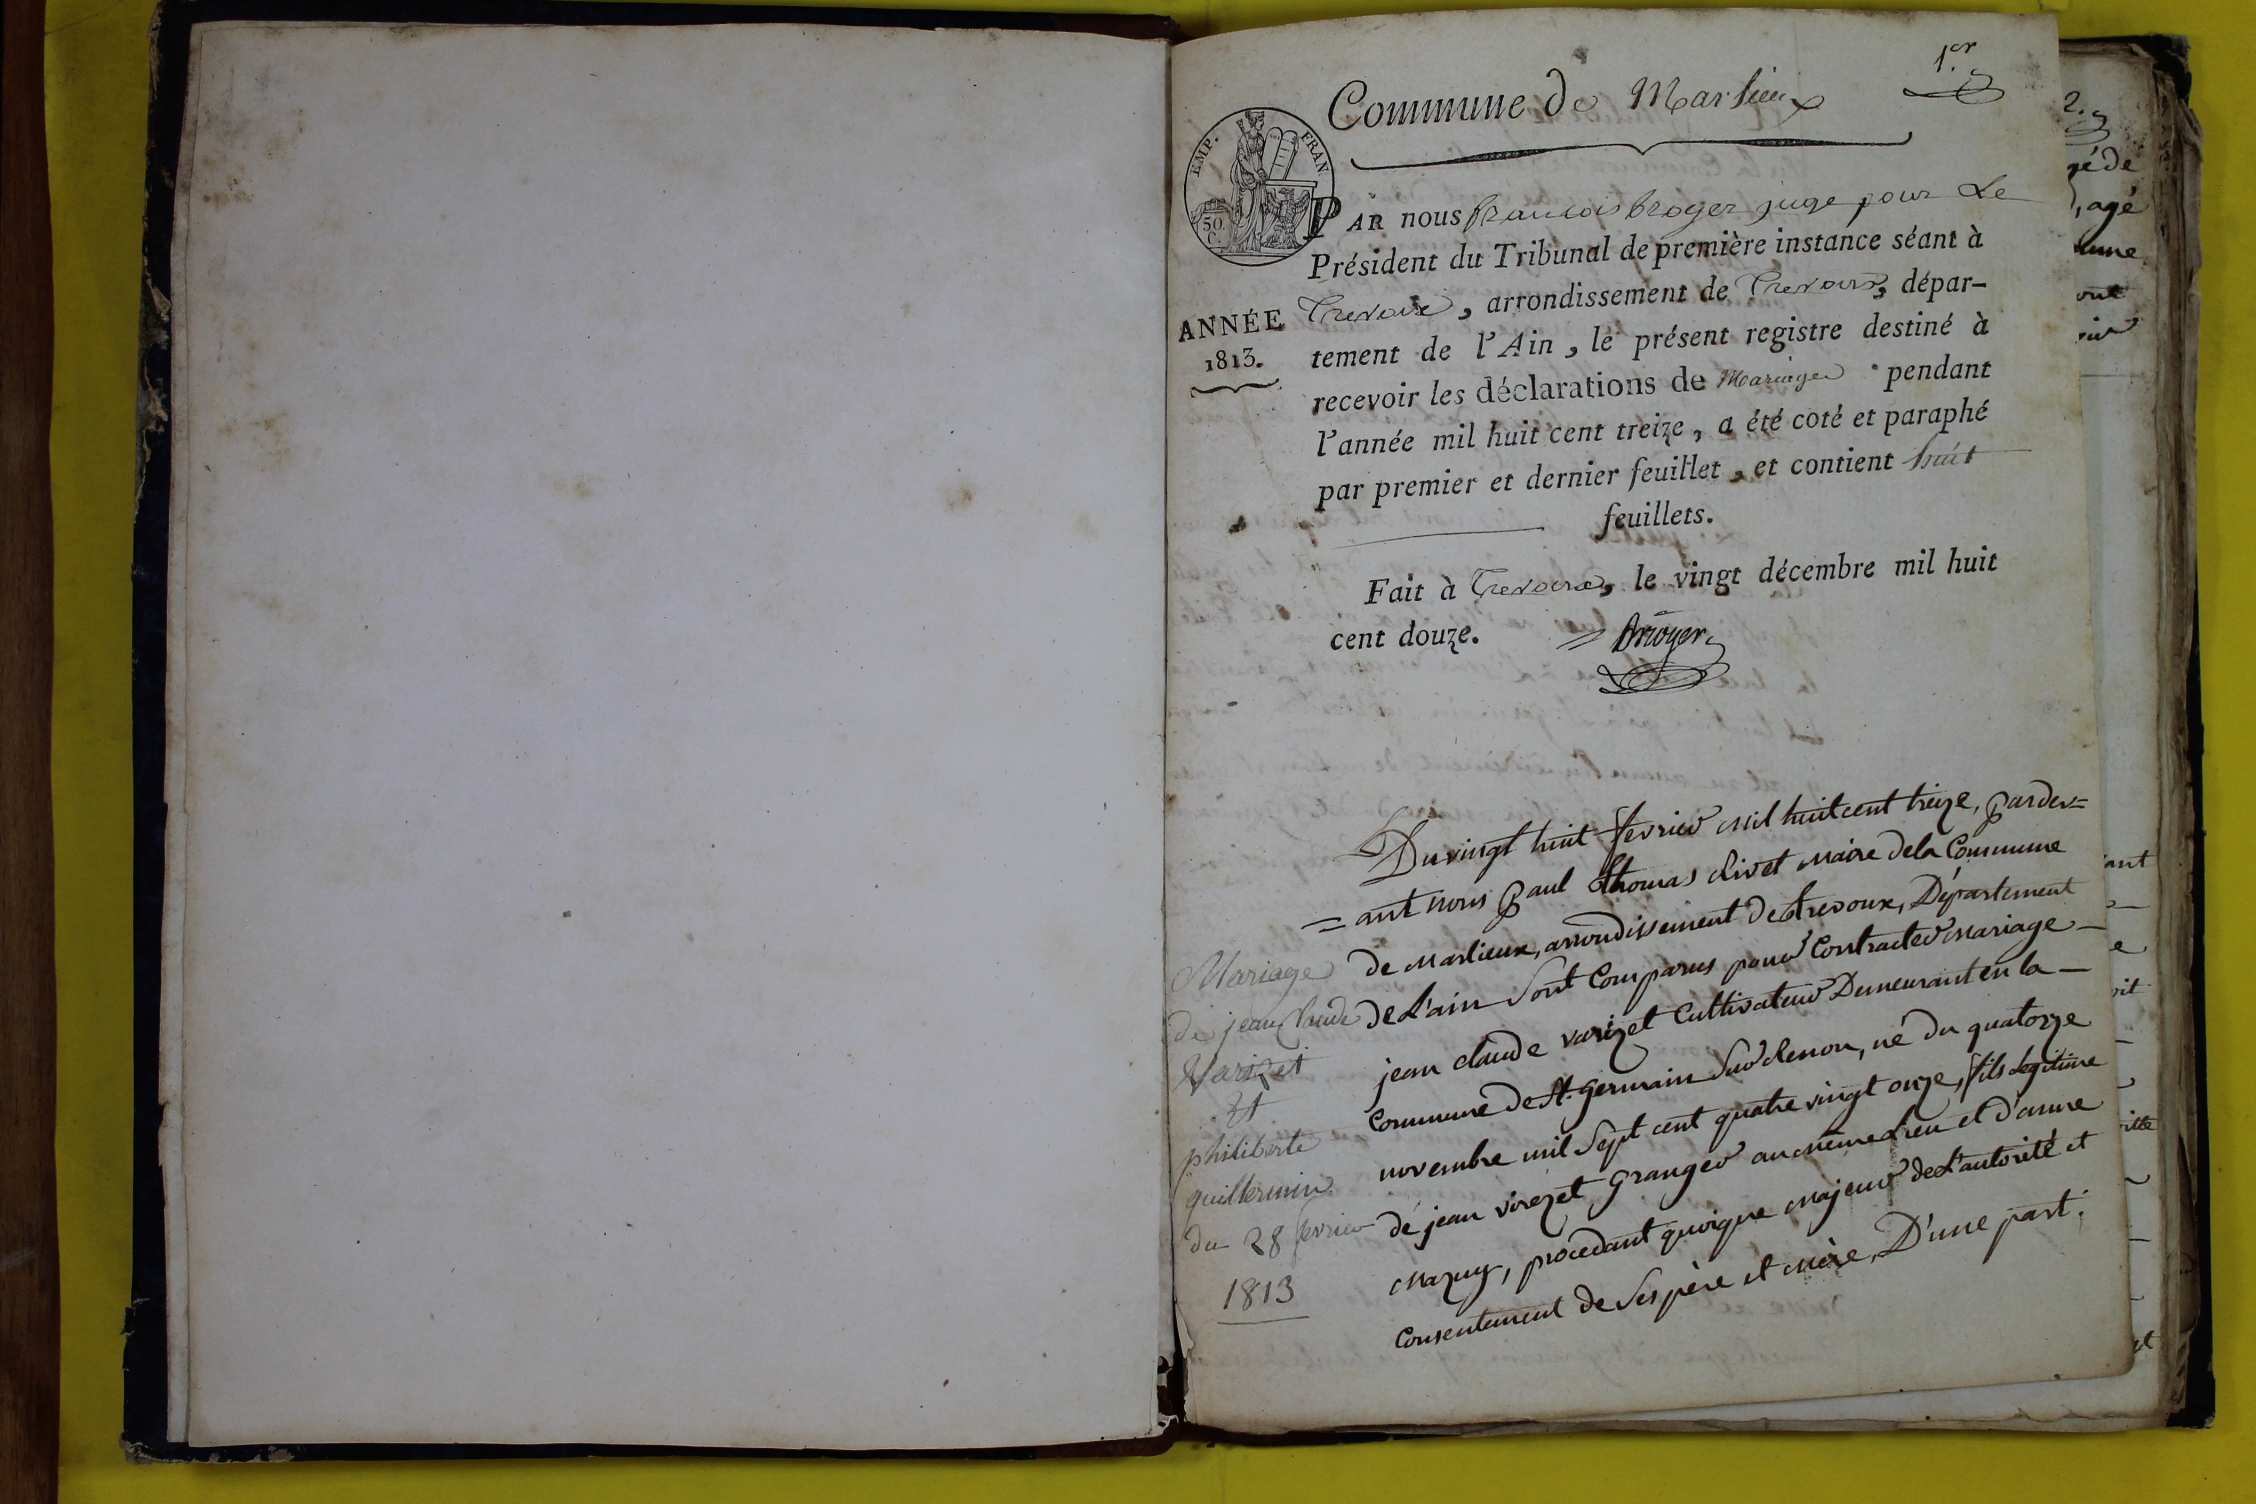 1.er
Commune de Marlieux
EMP. FRAN
50 C.
PAR nous francois broyer juge pour Le
Président du Tribunal de première instance séant à
Trevoux, arrondissement de Trevoux, dépar-
ANNÉE
1813.
tement de l'Ain, le présent registre destiné à
recevoir les déclarations de Mariages pendant
l'année mil huit cent treize, a été coté et paraphé
par premier et dernier feuillet, et contient huit
feuillets.
Fait à Trevoux, le vingt décembre mil huit
cent douze. Broyer
Du vingt huit fevrier mil huit cent treize, pardev=
=ant nous paul thomas Rivet maire dela Commune
de Marlieux, arrondissement de trevoux, Département
de L'ain Sont Comparus pour Contracter Mariage
jean claude varizet Cultivateur Demeurant en la
Commune de St. germain Sur Renon, né du quatorze
novembre mil Sept cent quatre vingt onze, fils Legitime
de jean virezet Granger au meme Lieu et d'anne
Mazuy, procedant quoique Majeur de L'autorité et
Consentement de Ses père et Mère, D'une part.
Mariage
de jean Claude
Varizet
Et
philiberte
guillermin
du 28 fevrier
1813
2.
gé de
, agé
une
ont
ant
e
rit
et